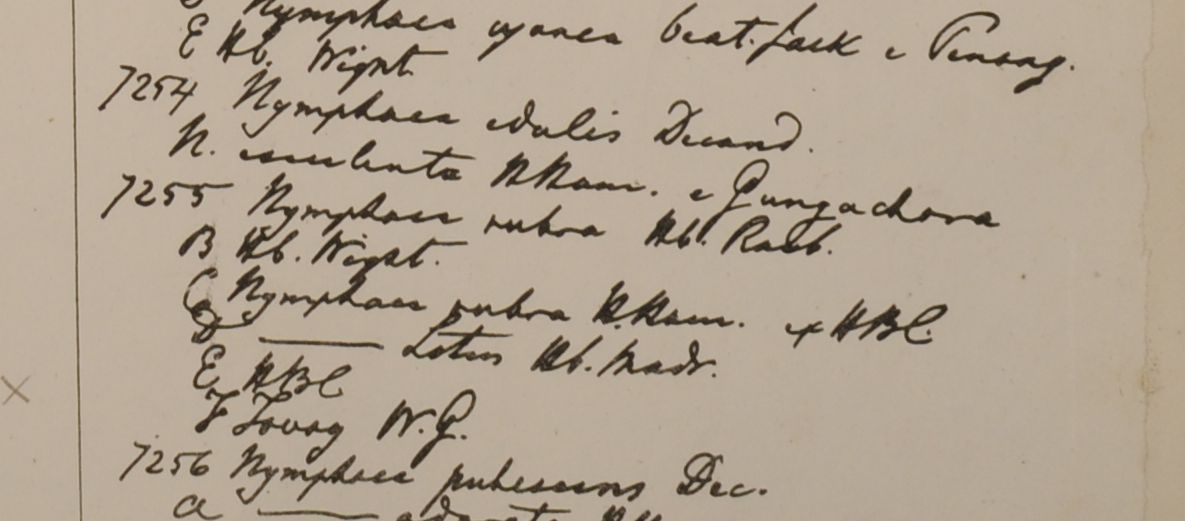 Nymphaea cyanea beat. Jack e Penang.
E Hb. Wight.
7254 Nymphaea edulis Decand.
N. esculenta H Ham. e Gungachora
7255 Nymphaea rubra Hb. Roxb.
B Hb. Wight.
C Nymphaea rubra H. Ham. ex HBC.
D ——— Lotus Hb. Madr.
E HBC
F Tavoy W.G.
7256 Nymphaea pubescens Dec.
a ———